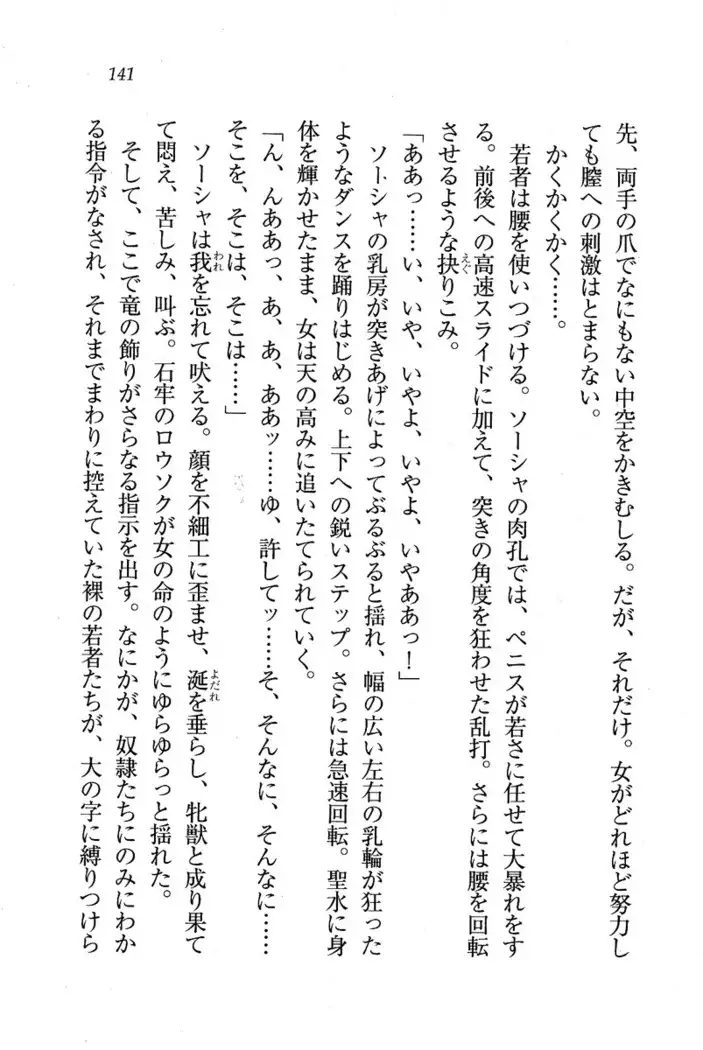 141
先、両手の爪でなにもない中空をかきむしる。だが、それだけ。女がどれほど努力し
ても膣への刺激はとまらない。
かくかくかく……。
若者は腰を使いつづける。ソーシャの肉孔では、ペニスが若さに任せて大暴れをす
る。前後への高速スライドに加えて、突きの角度を狂わせた乱打。さらには腰を回転
させるような抉（えぐ）りこみ。
「ああっ……い、いや、いやよ、いやよ、いやああっ！」
ソーシャの乳房が突きあげによってぶるぶると揺れ、幅の広い左右の乳輪が狂った
ようなダンスを踊りはじめる。上下への鋭いステップ。さらには急速回転。聖水に身
体を輝かせたまま、女は天の高みに追いたてられていく。
「ん、んああっ、あ、あ、ああッ……ゆ、許してッ……そ、そんなに、そんなに……
そこを、そこは、そこは……」
ソーシャは我（われ）を忘れて吠える。顔を不細工に歪ませ、涎（よだれ）を垂らし、牝獣と成り果て
て悶え、苦しみ、叫ぶ。石牢のロウソクが女の命のようにゆらゆらっと揺れた。
そして、ここで竜の飾りがさらなる指示を出す。なにかが、奴隷たちにのみにわか
る指令がなされ、それまでまわりに控えていた裸の若者たちが、大の字に縛りつけら